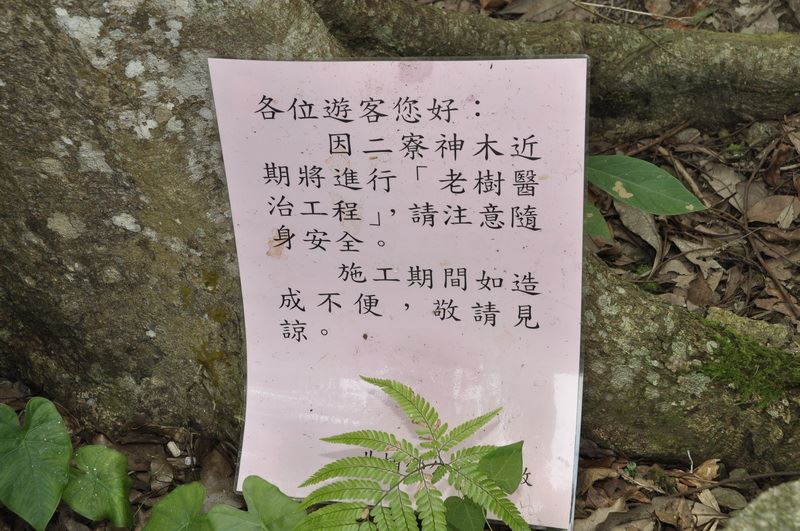 各位遊客您好：
因二寮神木近
期將進行「老樹醫
治工程」，請注意隨
身安全。
施工期間如造
成不便，敬請見
諒。